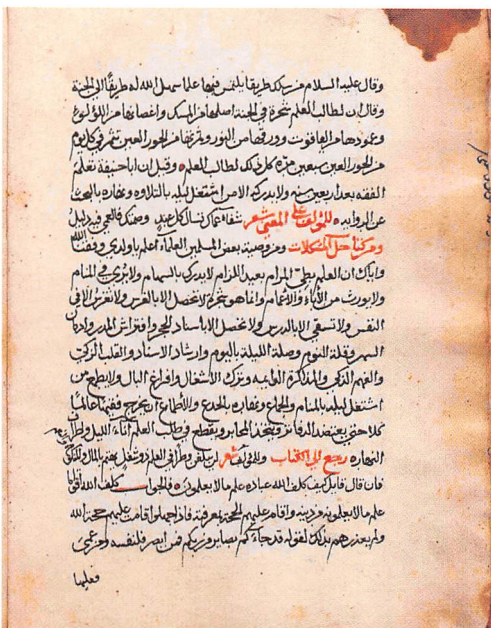 وقال عليه السلام من سلك طريقا يلتمس فيها علما سهل الله له طريقا الى الجنة
وقال ان لطالب العلم شجرة في الجنة اصلها من المسك واغصانها من اللؤلؤ
وعمودها من الياقوت وورقها من النور وثمرتها من الحور العين تثمر في كل يوم
من الحور العين سبعين مرة كل ذلك لطالب العلم وقيل ان ابا حنيفة تعلم
الفقه بعد اربعين سنة ولا يدرك هذا الامر اشتغل ليله بالتلاوة ونهاره بالبحث
عن الروايه للمؤلف على المعنى شعر
ومركبنا حل المشكلات ومن وصية بعض المسلمين العلماء اعلم يا ولدي وفقنا الله
واياك ان العلم بطيء المرام بعيد المزام لا يدرك بالسهام ولا يرى في المنام
ولا يورث من الآباء والأعمام وانما هو شجرة لا تحصل الا بالغرس ولا تغرس الا في
النفس ولا تسقى الا بالدرس ولا تحصل الا باستاد الحجر وافتراش المدر وادمان
السهر وقلة النوم وصلة الليلة باليوم وارشاد الاستاد والقلب الزكي
والفهم الذكي والمذاكرة وترك الاشغال وافراغ البال ولا يطمع من
اشتغل ليله بالمنام والجماع ونهاره بالجمع والأطماع ان يخرج فقيها عالما
كلا حتى يعتضد الدفاتر ويتخذ المحابر ويقطع في طلب العلم آناء الليل واطراف
النهار رجع الى الكتاب شعر
فان قال قايل كيف كلف الله عباده علم ما لا يعلمون فالجواب كلف الله
علم ما لا يعلمونه من دينه واقام عليهم الحجة بمعرفته فاذا جهلوا قامت عليهم حجة الله
ولم يعذرهم بذلك لقوله قد جاءكم بصاير من ربكم فمن ابصر فلنفسه ومن عمي
فعليها